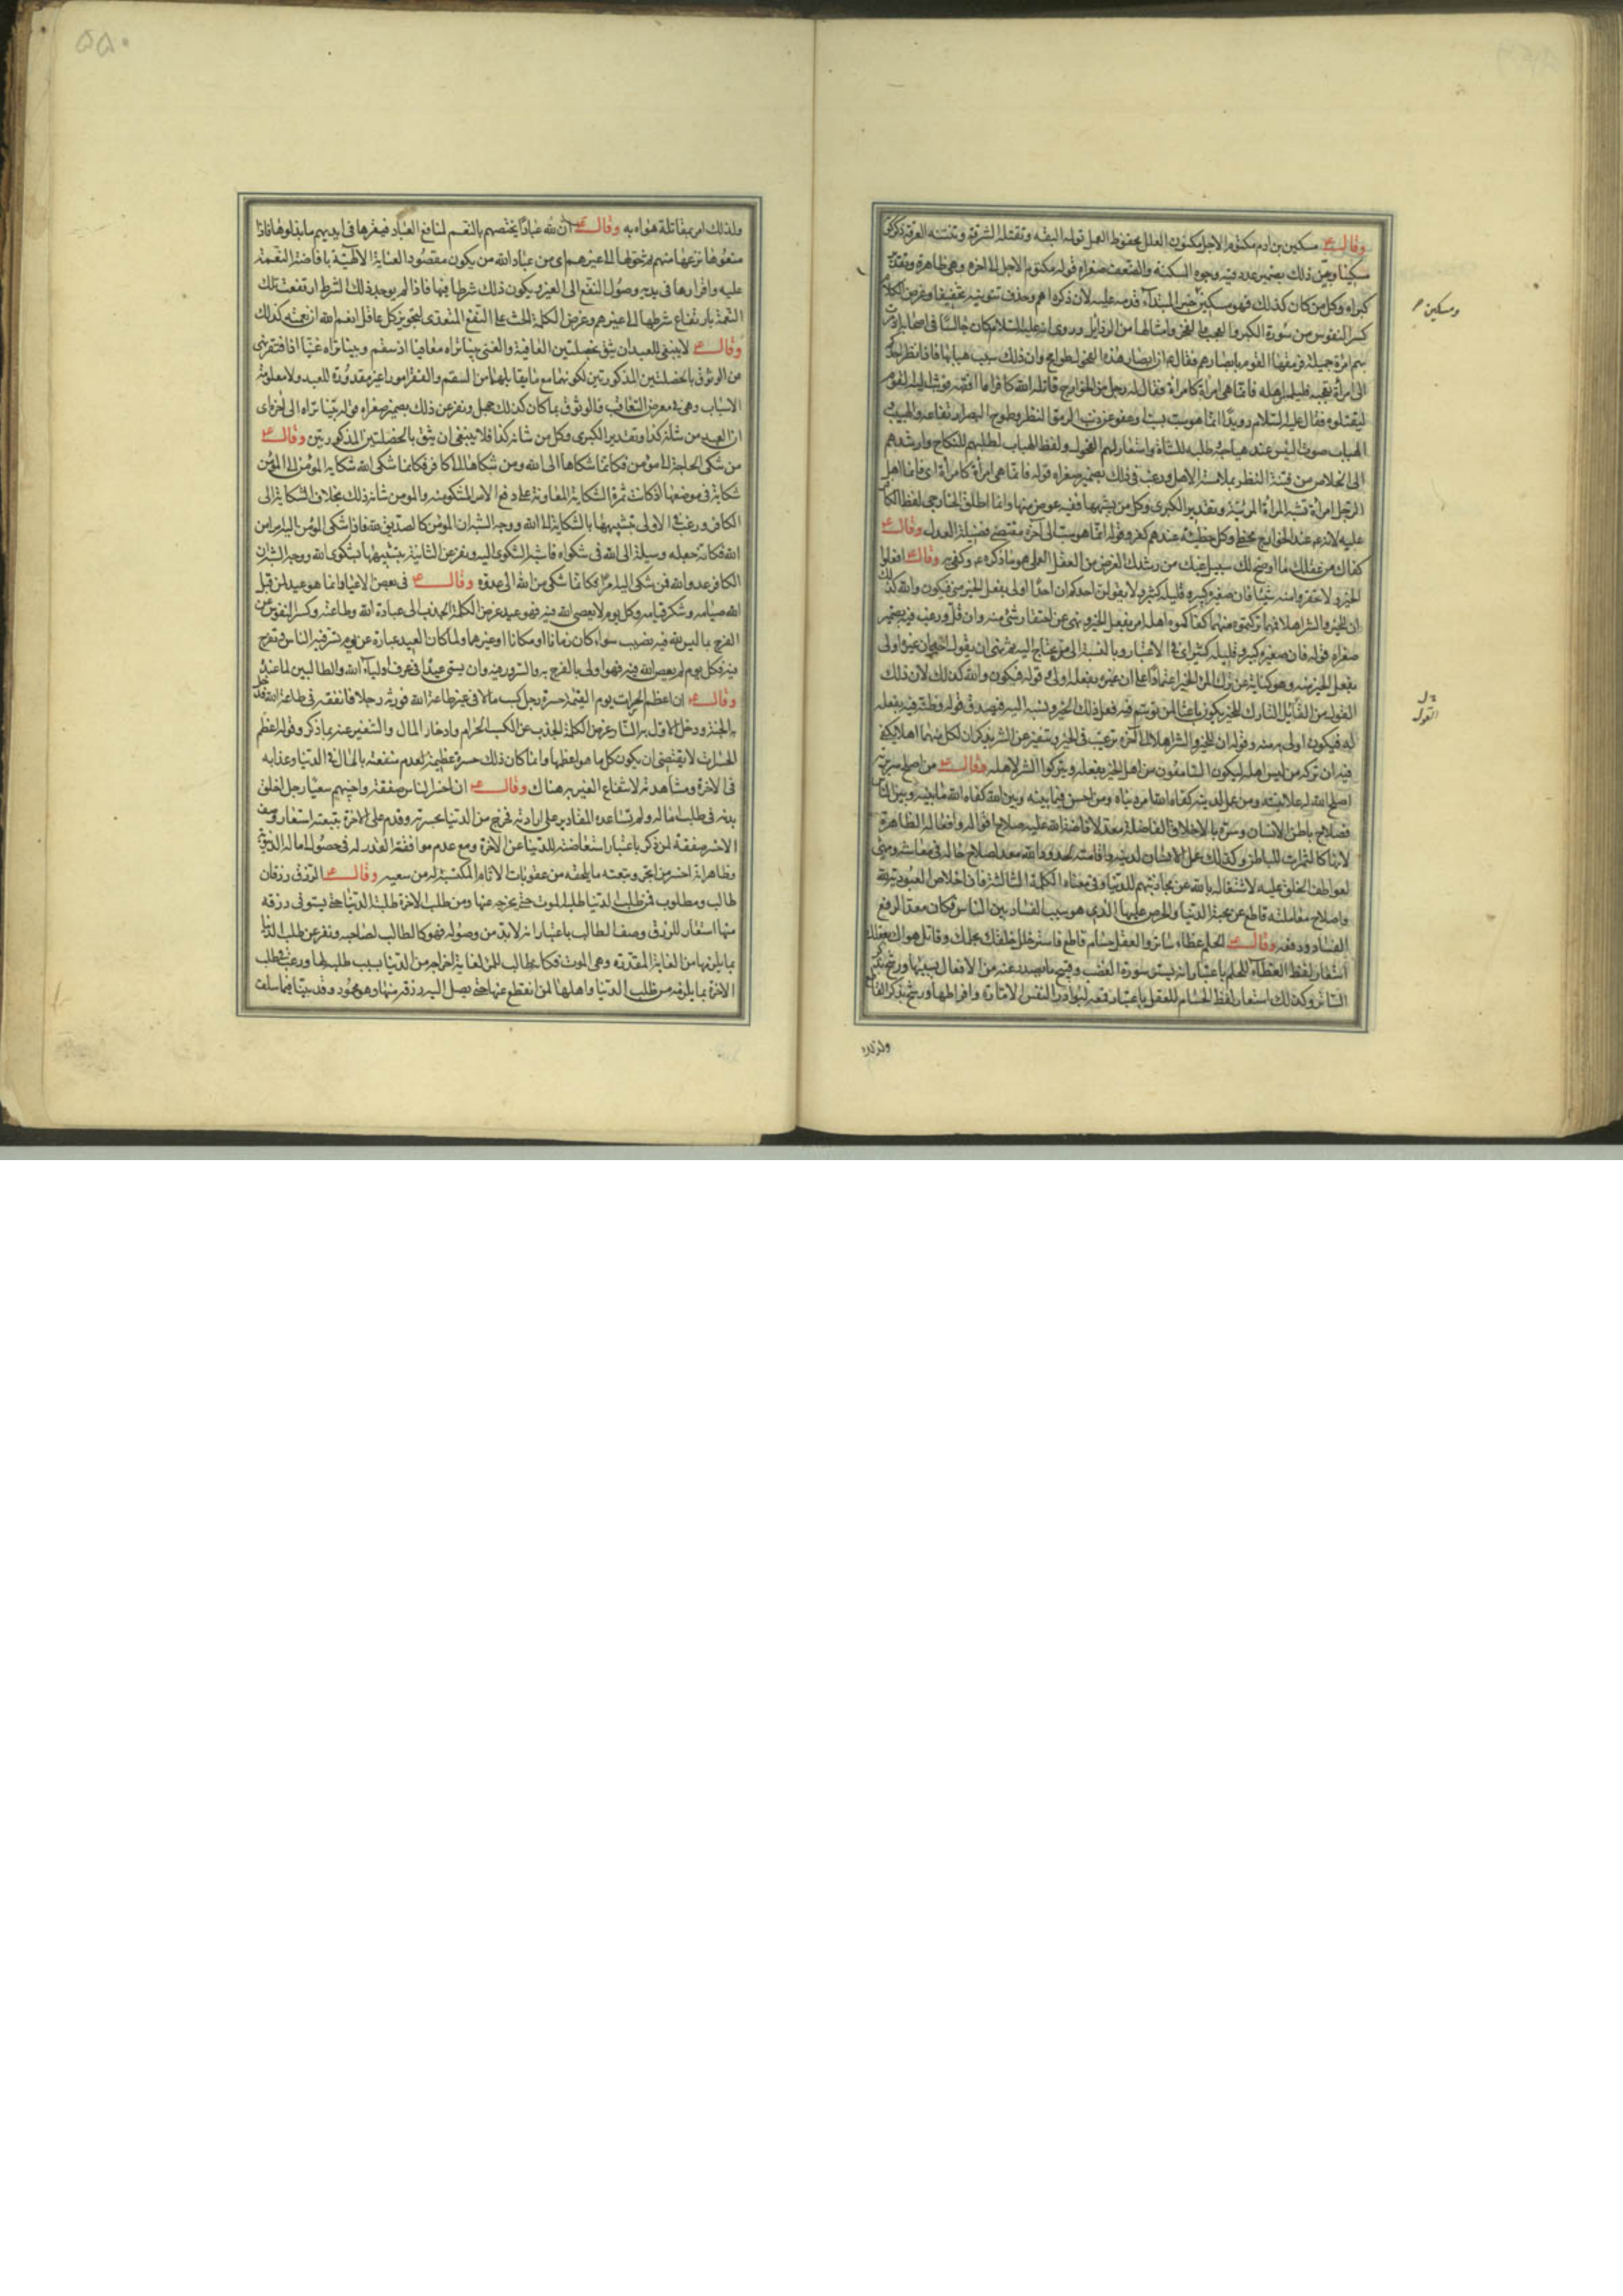 وقال ع مسكين بن ادم مكتوم الاجل مكنون العلل محفوظ العمل تولمه البقة وتقتله الشرقة وتنتنه العرقة
سكينا وبين ذلك بضمير عدد فيه وجوه المسكنة والضعف صغراه قوله مكتوم الاجل الى اخره وهي ظاهرة وتقدير
كبراه وكل من كان كذلك فهو مسكين خبر المبتدا قدمه عليه لان ذكره اهم وحذف تنوينه تخفيفا وغرض الكلام
كسر النفوس من سورة الكبر والعجب والفخر وامثالها من الرذايل وروى انه عليه السلام كان جالسا في اصحابه اذ مرت
بهم امراة جميلة فرمقها القوم بابصارهم فقال ع ان ابصار هذه الفحول طوامح وان ذلك سبب هبابها فاذا نظر احدكم
الى امراة تعجبه فليلمس اهله فانما هي امراة كامراة فقال له رجل من الخوارج قاتله الله كافرا ما افقهه فوثب اليه القوم
ليقتلوه فقال عليه السلام رويدا انما هو سب بسب او عفو عن ذنب الرمق النظر وطموح البصر ارتفاعه والهبيب
الهباب صوت التيس عند هياجه وطلبه للشاة واستعار لهم الفحول ولفظ الهباب لطلبهم للنكاح وارشدهم
الى الخلاص من فتنة النظر بملامسة الاهل ورغب في ذلك بضمير صغراه قوله فانما هي امراة كامراة اى فانما اهل
الرجل امراة تشبه المراة المرئية وتقدير الكبرى وكل من يشبهها ففيه عوض منها وانما اطلق الخارجي لفظ الكافر
عليه لانه ع عند الخوارج مخطئ وكل خطيئة عندهم كفر وقوله انما هو سب الى آخره مقتضى فضيلة العدل وقال ع
كفاك من عقلك ما اوضح لك سبيل غيك من رشدك الغرض من العقل العملي هو ما ذكره ع وكفى به وقال ع افعلوا
الخير ولا تحقروا منه شيئا فان صغيره كبير وقليله كثير ولا يقولن احدكم ان احدا اولى بفعل الخير مني فيكون والله كذلك
ان للخير والشر اهلا فمهما تركتموه منهما كفاكموه اهله امر بفعل الخير ونهى عن احتقار شئ منه وان قل ورغب فيه بضمير
صغراه قوله فان صغيره كبير وقليله كثير اى في الاعتبار وبالنسبة الى من يحتاج اليه ثم نهى ان يقول احدهم ان غيره اولى
بفعل الخير منه وهو كناية عن ترك المرء الخير اعتمادا على ان غيره يفعله اولى وقوله فيكون والله كذلك لان ذلك
القول من القائل التارك للخير يكون باعثا لمن توسم فيه فعل ذلك الخير ونسبه اليه فيصدق قوله وظنه فيه بفعله
له فيكون اولى به منه وقوله ان للخير والشر اهلا الى آخره ترغيب في الخير وتنفير عن الشر بذكر ان لكل منهما اهلا يكفي
فيه ان تركه من ليس اهله ليكون السامعون من اهل الخير بفعله ويتركوا الشر لاهله وقال ع من اصلح سريرته
اصلح الله له علانيته ومن عمل لدينه كفاه الله امر دنياه ومن احسن فيما بينه وبين الله كفاه الله ما بينه وبين الناس
فصلاح باطن الانسان وسره بالاخلاق الفاضلة معد لافاضة الله عليه صلاح اقواله وافعاله الظاهرة
لانها كالثمرات للباطن وكذلك عمل الانسان لدينه واقامته لحدود الله معد لاصلاح حاله في معاشه ومهيئ
لعواطف الخلق عليه لاشتغاله بالله عن مجاذبتهم للدنيا وفي معناه الكلمة الثالثة فان اخلاص العبودية لله
واصلاح معاملته قاطع عن محبة الدنيا والحرص عليها الذى هو سبب الفساد بين الناس فكان معدا لرفع
الفساد ودفعه وقال ع الحلم غطاء ساتر والعقل حسام قاطع فاستر خلل خلقك بحلمك وقاتل هواك بعقلك
استعار لفظ الغطاء للحلم باعتبار انه يستر سورة الغضب وقبيح ما يصدر عنه من الافعال بسببها ورشح بذكر
الساتر وكذلك استعار لفظ الحسام للعقل باعتبار قمعه لبوادر النفس الامارة وافراطها ورشح بذكر القاطع
ومسكين
القول
ولذلك
۵۵۰
ولذلك امر بمقاتلة هواه به وقال ع ان لله عبادا يختصهم بالنعم لمنافع العباد فيقرها في ايديهم ما بذلوها فاذا
منعوها نزعها منهم ثم حولها الى غيرهم اى من عباد الله من يكون مقصود العناية الالهية بافاضة النعمة
عليه واقرارها في يديه وصول النفع الى الغير ويكون ذلك شرطا فيها فاذا لم يوجد ذلك الشرط ارتفعت تلك
النعمة بارتفاع شرطها الى غيرهم وغرض الكلمة الحث على النفع المتعدى لتجويز كل عاقل انعم الله ان نعمته كذلك
وقال ع لا ينبغي للعبد ان يثق بخصلتين العافية والغنى بينا تراه معافيا اذ سقم وبينا تراه غنيا اذ افتقر نهى
من الوثوق بالخصلتين المذكورتين لكونهما مع ما يقابلهما من السقم والفقر امورا غير مقدورة للعبد ولا معلومة
الاسباب وهي في معرض التعاقب فالوثوق بما كان كذلك جهل ونفر عن ذلك بضمير صغراه قوله بينا تراه الى آخره اى
ان العبد من شانه كذا وتقدير الكبرى وكل من شانه كذا فلا ينبغي ان يثق بالخصلتين المذكورتين وقال ع
من شكى الحاجة الى مؤمن فكانما شكاها الى الله ومن شكاها الى كافر فكانما شكى الله شكاية المؤمن الى المؤمن
شكاية في موضعها اذ كانت ثمرة الشكاية المعاونة على دفع الامر المشكو منه والمومن شانه ذلك بخلاف الشكاية الى
الكافر ورغب في الاولى بتشبيهها بالشكاية الى الله ووجه الشبه ان المؤمن كالصديق لله فاذا شكى المؤمن اليه امرا من
الله فكانه جعله وسيلة الى الله في شكواه فاشبه الشكوى اليه ونفر عن الثانية بتشبيهها بشكوى الله ووجه الشبه ان
الكافر عدو الله فمن شكى اليه امرا فكانما شكى من الله الى عدوه وقال ع في بعض الاعياد انما هو عيد لمن قبل
الله صيامه وشكر قيامه وكل يوم لا نعصى الله فيه فهو عيد غرض الكلمة الجذب الى عبادة الله وطاعته وكسر النفوس من
الفرح بما ليس لله فيه نصيب سواء كان زمانا او مكانا او غيرهما ولما كان العيد عبارة عن يوم يسر فيه الناس ويفرح
فيه فكل يوم لم يعص الله فيه فهو اولى بالفرح به والسرور فيه وان يسمى عيدا في عرف اولياء الله والطالبين لما عنده
وقال ع ان اعظم الحسرات يوم القيمة حسرة رجل كسب مالا في غير طاعة الله فورثه رجلا فانفقه في طاعة الله فدخل
به الجنة ودخل الاول به النار غرض الكلمة الجذب عن الكسب الحرام وادخار المال والتنفير عنه بما ذكر وقوله اعظم
الحسرات لا يقتضى ان يكون كل ما هو اعظمها وانما كان ذلك حسرة عظيمة لعدم منفعته بالمال في الدنيا وعذابه
في الاخرة ومشاهدته لانتفاع الغير به هناك وقال ع ان اخسر الناس صفقة واخيبهم سعيا رجل اخلق
بدنه في طلب ماله ولم تساعده المقادير على ارادته فخرج من الدنيا بحسرته وقدم على الاخرة بتبعته استعار وصف
الاخسر صفقة لمن ذكر باعتبار استعاضته للدنيا عن الاخرة ومع عدم موافقة القدر له في حصول اماله الدنيوية
وظاهر انه اخسر من اتجر وتبعته ما يلحقه من عقوبات الاثام المكتسبة له من سعيه وقال ع الرزق رزقان
طالب ومطلوب فمن طلب الدنيا طلبه الموت حتى يخرجه عنها ومن طلب الاخرة طلبته الدنيا حتى يستوفى رزقه
منها استعار للرزق وصف الطالب باعتبار انه لابد من وصوله فهو كالطالب لصاحبه ونفر عن طلب الدنيا
بما يلزمها من الغاية المقدرة وهي الموت فكانه طالب للمرء لغاية اخراجه من الدنيا بسبب طلبه لها ورغب في طلب
الاخرة بما يلزمه من طلب الدنيا واهلها لمن انقطع عنها حتى يصل اليه رزقه منها وهو محمود وقد بينا فيما سلف